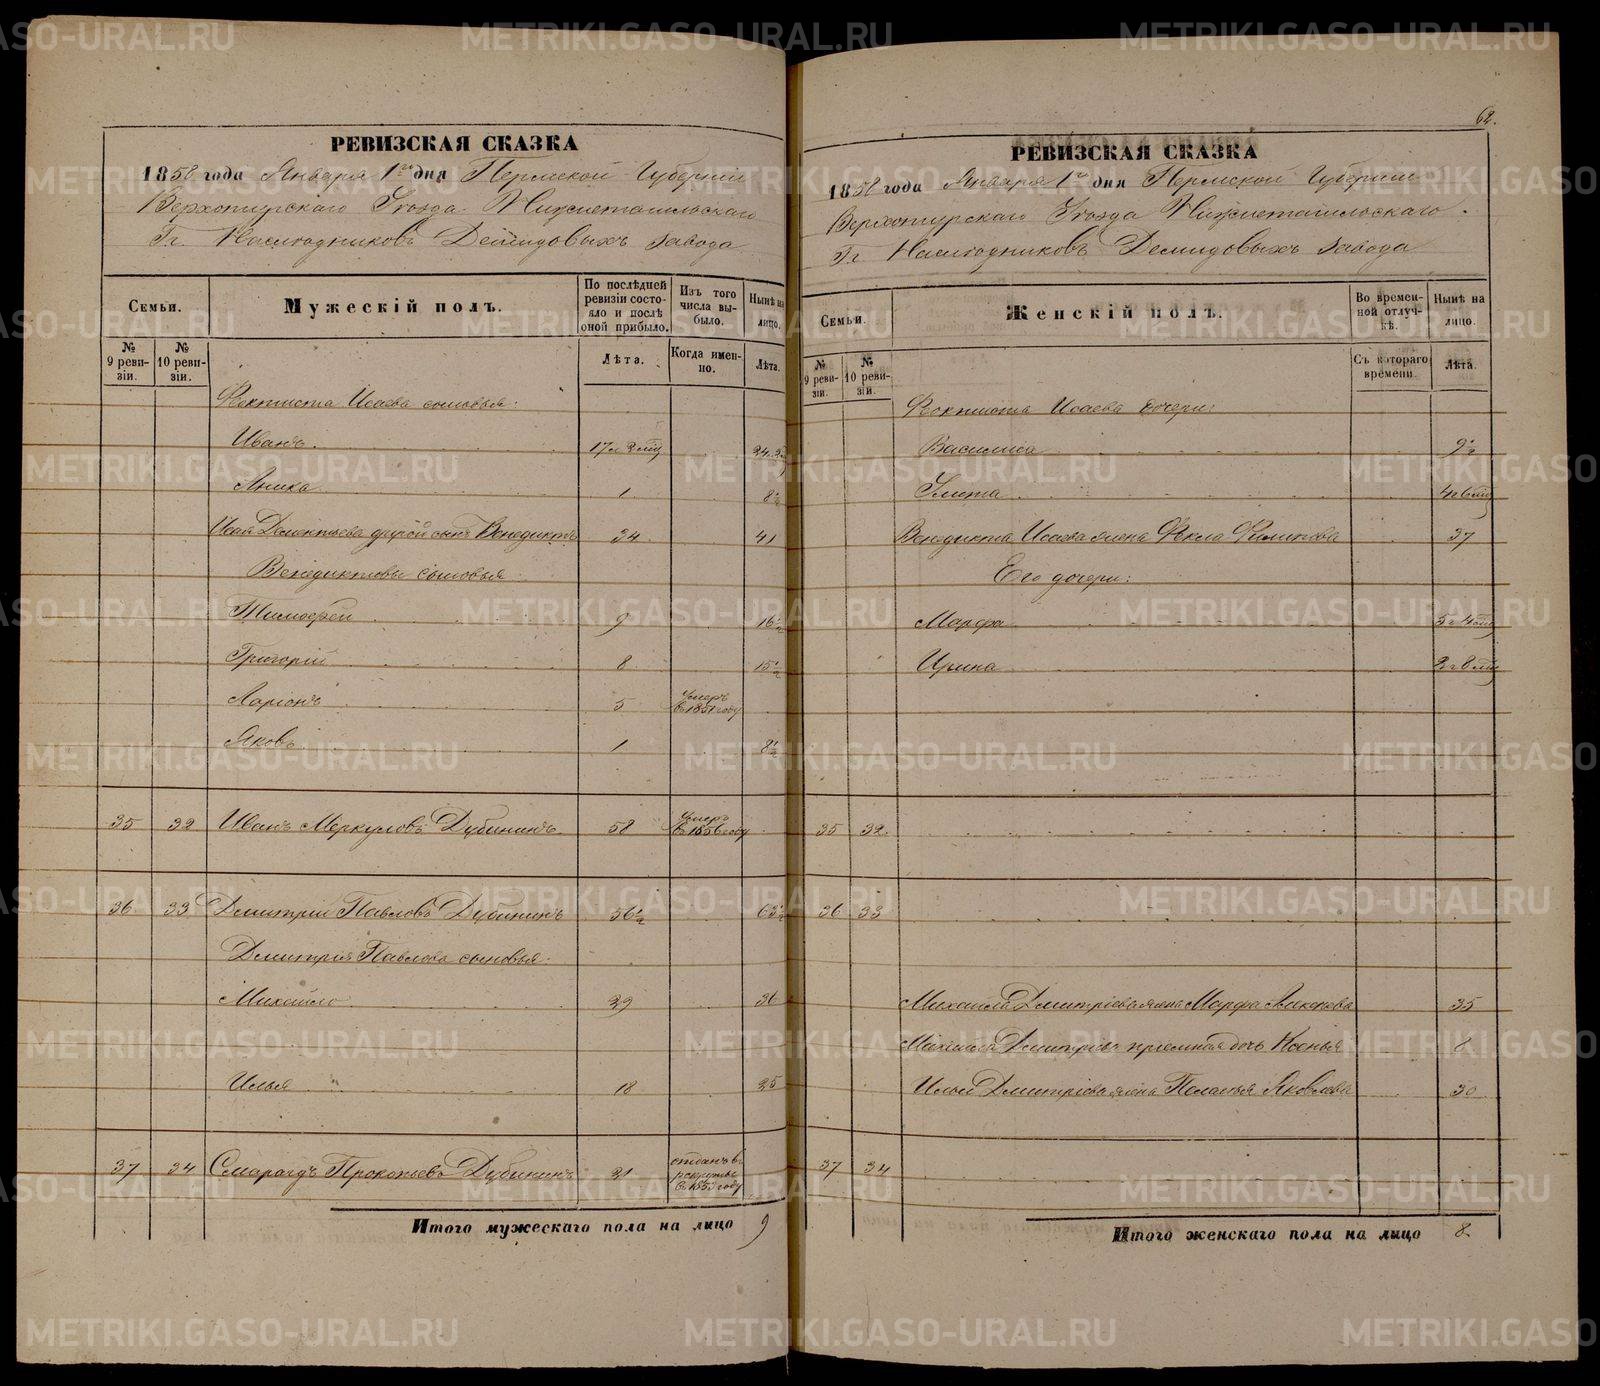 62.
РЕВИЗСКАЯ СКАЗКА
1858 года Января 1го дня Пермской Губерніи
Верхотурскаго Уѣзда Нижнетагильскаго
Гг. Наслѣдниковъ Демидовыхъ завода
Семьи.
Мужескій полъ.
По послѣдней ревизіи состояло и послѣ оной прибыло.
Изъ того числа выбыло.
Нынѣ на лицо.
№ 9 ревизіи.
№ 10 ревизіи.
Лѣта.
Когда именно.
Лѣта.
Феоктиста Исаева сыновья:
Иванъ 17 л 2 мц 24
Аника 1 8½
Исая Дементьева другой сынъ Венедиктъ 34 41
Венедиктовы сыновья
Тимофей 9 16½
Григорій 8 15½
Ларіонъ 5 умеръ в 1851 году
Яковъ 1 8½
35 32 Иванъ Меркуловъ Дубининъ 58 умеръ в 1856 году
36 33 Дмитрій Павловъ Дубининъ 56½ 63½
Дмитрія Павлова сыновья:
Михайло 29 36
Илья 18 25
37 34 Смарагдъ Прокопьевъ Дубининъ 21 отданъ въ рекруты в 1855 году
Итого мужескаго пола на лицо 9
РЕВИЗСКАЯ СКАЗКА
1858 года Января 1го дня Пермской Губерніи
Верхотурскаго Уѣзда Нижнетагильскаго
Гг. Наслѣдниковъ Демидовыхъ завода
Семьи.
Женскій полъ.
Во временной отлучкѣ.
Нынѣ на лицо.
№ 9 ревизіи.
№ 10 ревизіи.
Съ котораго времени.
Лѣта.
Феоктиста Исаева дочери:
Василиса 9½
Улита 4 г 6 мц
Венедикта Исаева жена Фекла Филипова 37
Его дочери:
Марфа 5 г 4 мц
Ирина 2 г 8 мц
35 32
36 33
Михаила Дмитріева жена Марфа 35
Михаила Дмитріева пріемная дочь Ксенья 8
Ильи Дмитріева жена Пелагья Яковлева 30
37 34
Итого женскаго пола на лицо 8
METRIKI.GASO-URAL.RU